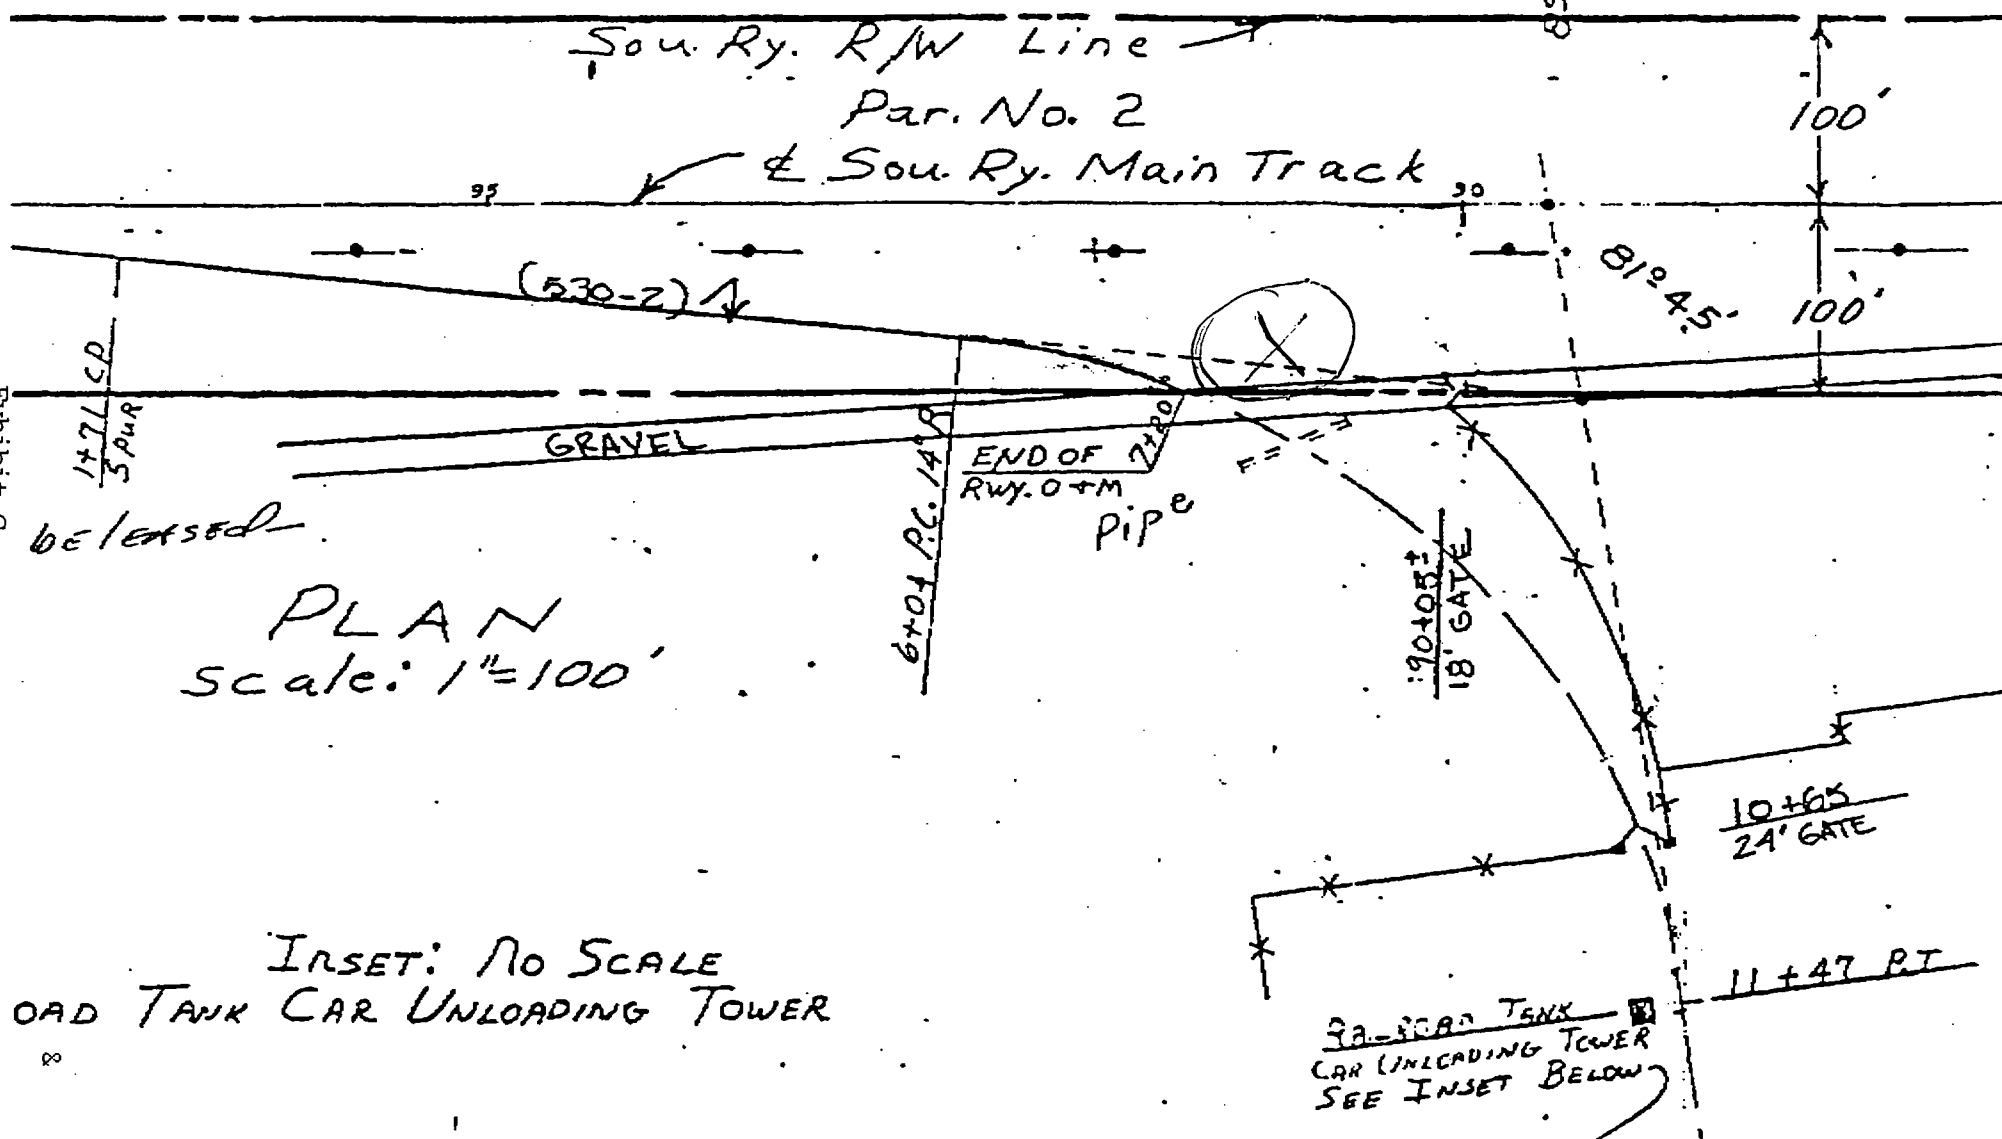 Sou. Ry. R/W Line
Par. No. 2
℄ Sou. Ry. Main Track
100'
95
90
(530-2)
81° 45'
100'
1+71 CP
5 PUR
GRAVEL
6+04 P.C. 14° R
END OF 7+80
RWY. O+M
pipe
be leased
PLAN
scale: 1"=100'
90+05±
18' GATE
10+65
24' GATE
INSET: NO SCALE
OAD TANK CAR UNLOADING TOWER
8
11+47 P.T
TANK
CAR UNLOADING TOWER
SEE INSET BELOW